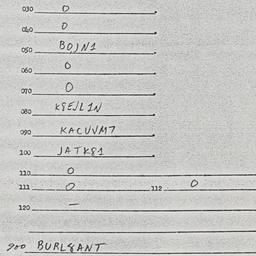 030 0
040 0
050 BOJN1
060 0
070 0
080 K8EJL1N
090 KACUVM7
100 JATK81
110 0
111 0 112 0
120 —
900 BURL8ANT